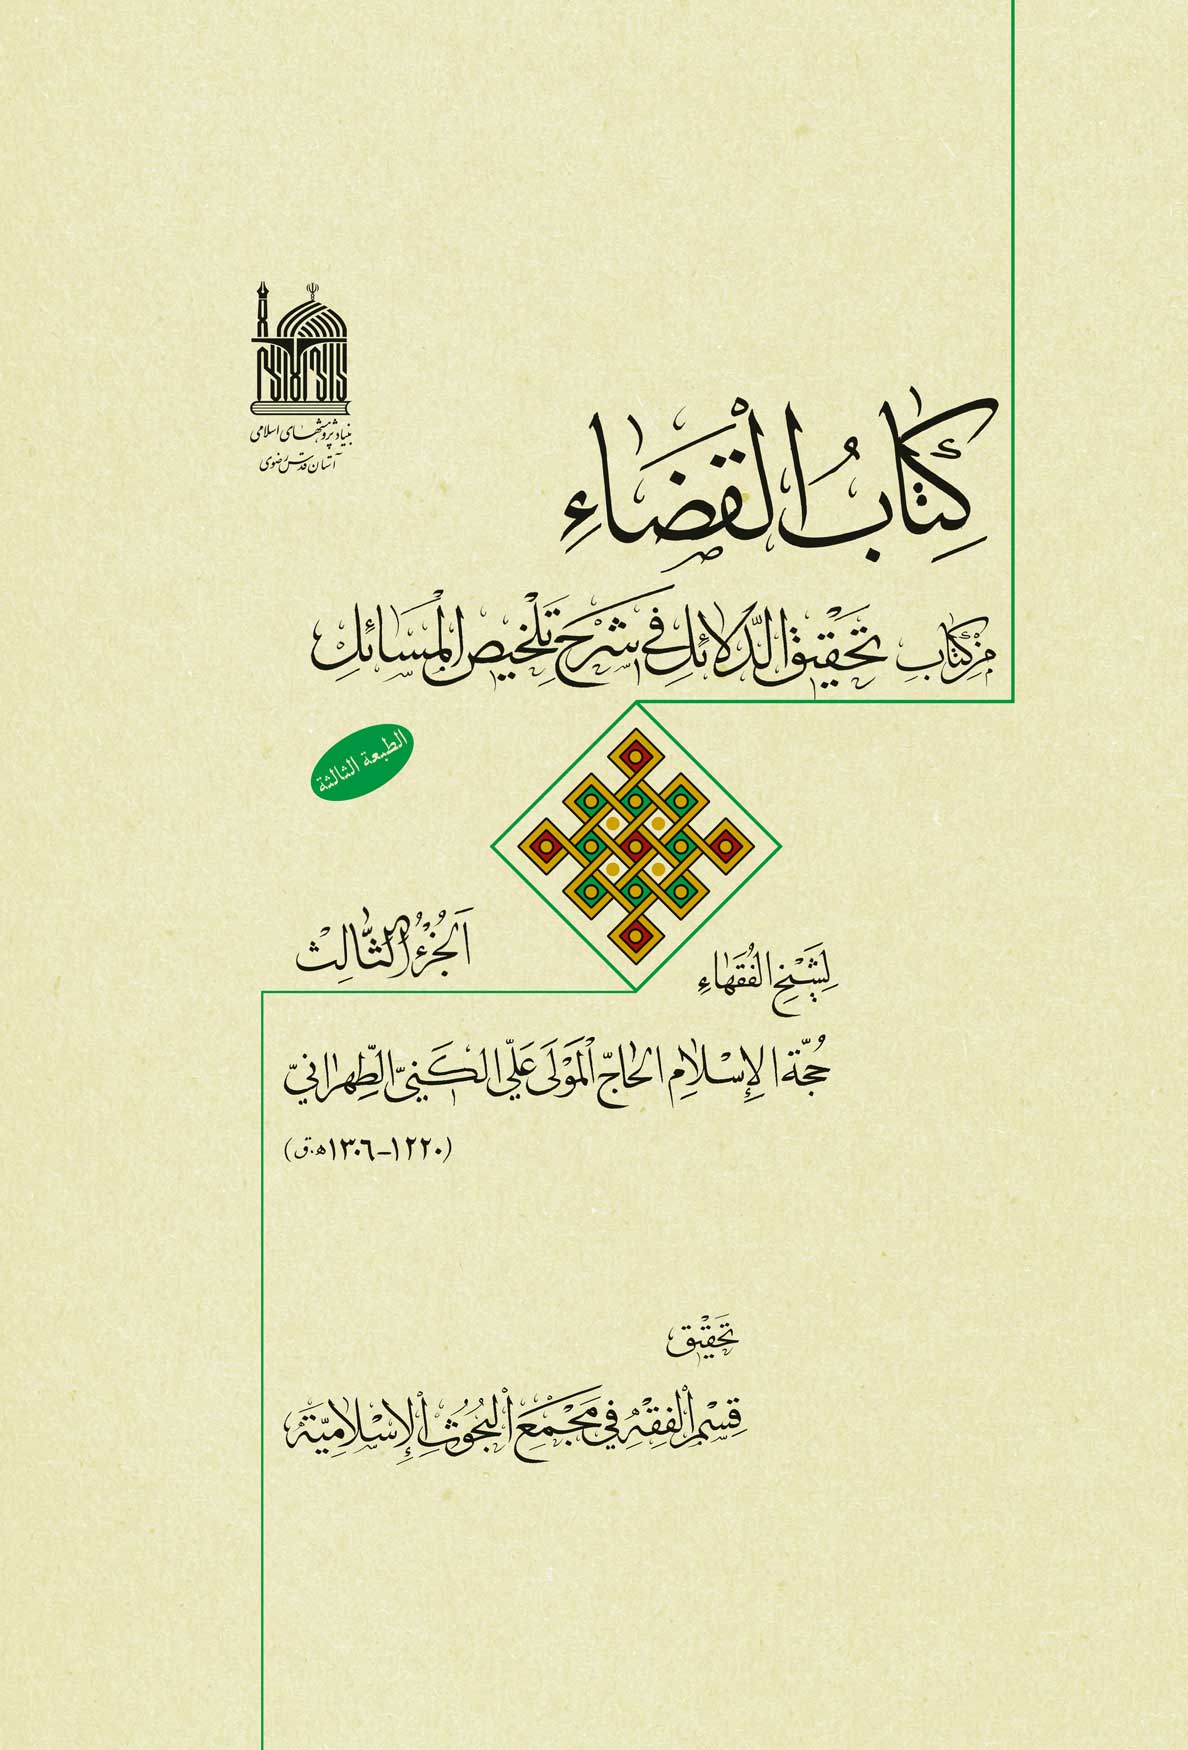 بنیاد پژوهشهای اسلامی
آستان قدس رضوی
كِتَابُ الْقَضَاءِ
مِنْ كِتَابِ تَحْقِيقِ الدَّلَائِلِ فِي شَرْحِ تَلْخِيصِ الْمَسَائِلِ
الطبعة الثالثة
اَلْجُزْءُ الثَّالِث
لِشَيْخِ الْفُقَهَاءِ
حُجَّة الإِسْلَامِ الحَاجّ الْمَوْلَى عَلِّي الكَنِيّ الطِّهرَانيّ
(١٢٢٠-١٣٠٦ه‍.ق)
تَحْقِيْق
قِسْمِ الْفِقْهِ فِي مَجْمَعِ الْبُحُوثِ الإِسْلَامِيَّةِ